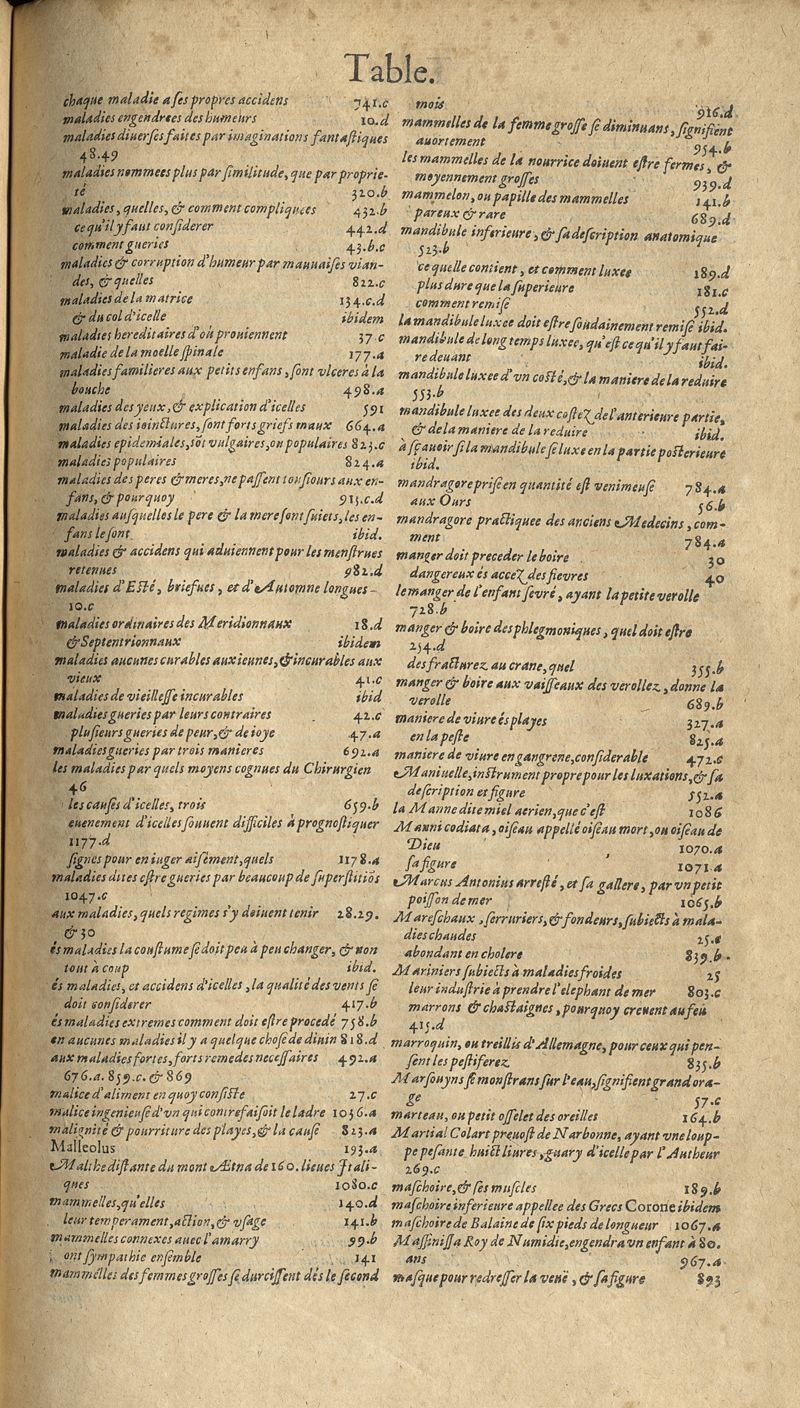 Table.
chaque maladie a ses propres accidens 741.c
maladies engendrees des humeurs 10.d
maladies diuerses faites par imaginations fantastiques
48.49
maladies nommees plus par similitude, que par proprie-
té 320.b
maladies, quelles, & comment compliquees 432.b
ce qu'il y faut considerer 442.d
comment gueries 43.b.c
maladies & corruption d'humeur par mauuaises vian-
des, & quelles 822.c
maladies de la matrice 134.c.d
& du col d'icelle ibidem
maladies hereditaires d'où prouiennent 37.c
maladie de la moelle spinale 177.a
maladies familieres aux petits enfans, sont vlceres à la
bouche 498.a
maladies des yeux, & explication d'icelles 591
maladies des iointures, sont forts griefs maux 664.a
maladies epidemiales, sõt vulgaires, ou populaires 823.c
maladies populaires 824.a
maladies des peres & meres, ne passent tousiours aux en-
fans, & pourquoy 913.c.d
maladies ausquelles le pere & la mere sont suiets, les en-
fans le sont ibid.
maladies & accidens qui aduiennent pour les menstrues
retenues 982.d
maladies d'Esté, briefues, et d'Automne longues
10.c
maladies ordinaires des Meridionnaux 18.d
& Septentrionnaux ibidem
maladies aucunes curables aux ieunes, & incurables aux
vieux 41.c
maladies de vieillesse incurables ibid
maladies gueries par leurs contraires 42.c
plusieurs gueries de peur, & de ioye 47.a
maladies gueries par trois manieres 692.a
les maladies par quels moyens cognues du Chirurgien
46
les causes d'icelles, trois 659.b
euenement d'icelles souuent difficiles à prognostiquer
1177.d
signes pour en iuger aisément, quels 1178.a
maladies dites estre gueries par beaucoup de superstitiõs
1047.c
aux maladies, quels regimes s'y doiuent tenir 28.29.
& 30
és maladies la coustume se doit peu à peu changer, & non
tout à coup ibid.
és maladies, et accidens d'icelles, la qualité des vents se
doit considerer 417.b
és maladies extremes comment doit estre procedé 758.b
en aucunes maladies il y a quelque chose de diuin 818.d
aux maladies fortes, forts remedes necessaires 492.a
676.a. 859.c. & 869
malice d'aliment en quoy consiste 27.c
malice ingenieuse d'vn qui contrefaisoit le ladre 1056.a
malignité & pourriture des playes, & la cause 823.a
Malleolus 193.a
Malthe distante du mont Ætna de 160. lieues Itali-
ques 1080.c
mammelles, qu'elles 140.d
leur temperament, action, & vsage 141.b
mammelles connexes auec l'amarry 99.b
ont sympathie ensemble 141
mammelles des femmes grosses se durcissent dés le second
mois 916.d
mammelles de la femme grosse se diminuans, signifient
auortement 954.b
les mammelles de la nourrice doiuent estre fermes, &
moyennement grosses 939.d
mammelon, ou papille des mammelles 141.b
pareux & rare 689.d
mandibule inferieure, & sa description anatomique
523.b
ce quelle contient, et comment luxee 189.d
plus dure que la superieure 181.c
comment remise 552.d
la mandibule luxee doit estre soudainement remise ibid.
mandibule de long temps luxee, qu'est ce qu'il y faut fai-
re deuant ibid.
mandibule luxee d'vn costé, & la maniere de la reduire
553.b
mandibule luxee des deux costez de l'anterieure partie,
& de la maniere de la reduire ibid.
à sçauoir si la mandibule se luxe en la partie posterieure
ibid.
mandragore prise en quantité est venimeuse 784.a
aux Ours 56.b
mandragore practiquee des anciens Medecins, com-
ment 784.a
manger doit preceder le boire 30
dangereux és accez des fievres 40
le manger de l'enfant sevré, ayant la petite verolle
728.b
manger & boire des phlegmoniques, quel doit estre
254.d
des fracturez au crane, quel 355.b
manger & boire aux vaisseaux des verollez, donne la
verolle 689.b
maniere de viure és playes 327.a
en la peste 825.a
maniere de viure en gangrene, considerable 472.c
Maniuelle, instrument propre pour les luxations, & sa
description et figure 552.a
la Manne dite miel aerien, que c'est 1086
Manni codiata, oiseau appellé oiseau mort, ou oiseau de
Dieu 1070.a
sa figure 1071.a
Marcus Antonius arresté, et sa gallere, par vn petit
poisson de mer 1065.b
Mareschaux, serruriers, & fondeurs, subiects à mala-
dies chaudes 25.c
abondant en cholere 839.b.
Mariniers subiects à maladies froides 25
leur industrie à prendre l'elephant de mer 803.c
marrons & chastaignes, pourquoy creuent au feu
415.d
marroquin, ou treillis d'Allemagne, pour ceux qui pen-
sent les pestiferez 835.b
Marsouyns se monstrans sur l'eau, signifient grand ora-
ge 57.c
marteau, ou petit osselet des oreilles 164.b
Martial Colart preuost de Narbonne, ayant vne loup-
pe pesante huict liures, guary d'icelle par l'Autheur
269.c
maschoire, & ses muscles 189.b
maschoire inferieure appellee des Grecs Corone ibidem
maschoire de Balaine de six pieds de longueur 1067.a
Massinissa Roy de Numidie, engendra vn enfant à 80.
ans 967.a
masque pour redresser la veuë, & sa figure 893